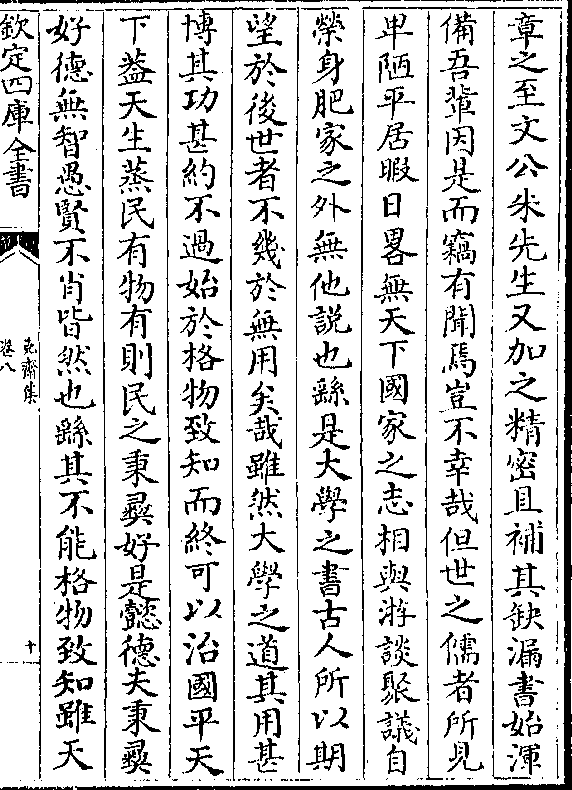 章之至文公朱先生又加之精密且補其缺漏書始渾
備吾輩因是而竊有聞焉豈不幸哉但世之儒者所見
卑陋平居暇日畧無天下國家之志相與游談聚議自
榮身肥家之外無他説也繇是大學之書古人所以期
望於後世者不幾於無用矣哉雖然大學之道其用甚
博其功甚約不過始於格物致知而終可以治國平天
下葢天生蒸民有物有則民之秉彛好是懿德夫秉彛
好德無智愚賢不肖皆然也繇其不能格物致知雖天
欽定四庫全書
克齋集
卷八
十